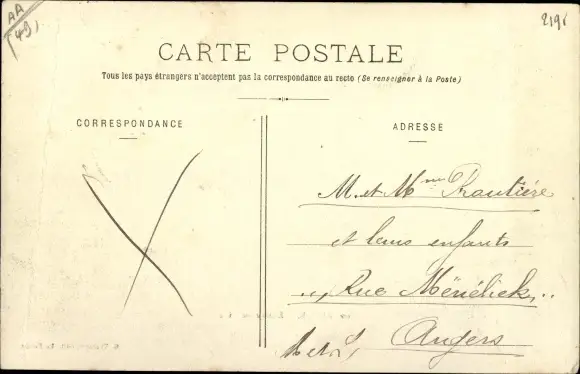 AA
(49)
2196
CARTE POSTALE
Tous les pays étrangers n'acceptent pas la correspondance au recto (Se renseigner à la Poste)
CORRESPONDANCE
ADRESSE
M. et Mme
et leurs enfants
Rue Ménélick
Angers